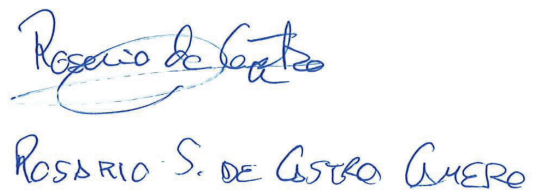 Rosario de Castro
ROSARIO S. DE CASTRO CAMERO